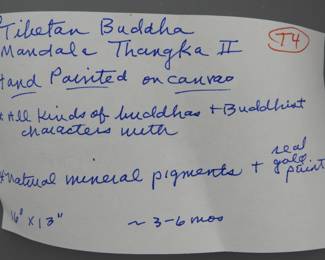 Tibetan Buddha
Mandala Thangka II
T4
Hand Painted on canvas
* All kinds of buddhas + Buddhist
characters with
* Natural mineral pigments + real
gold
paint
16" x 13" ~ 3-6 mos